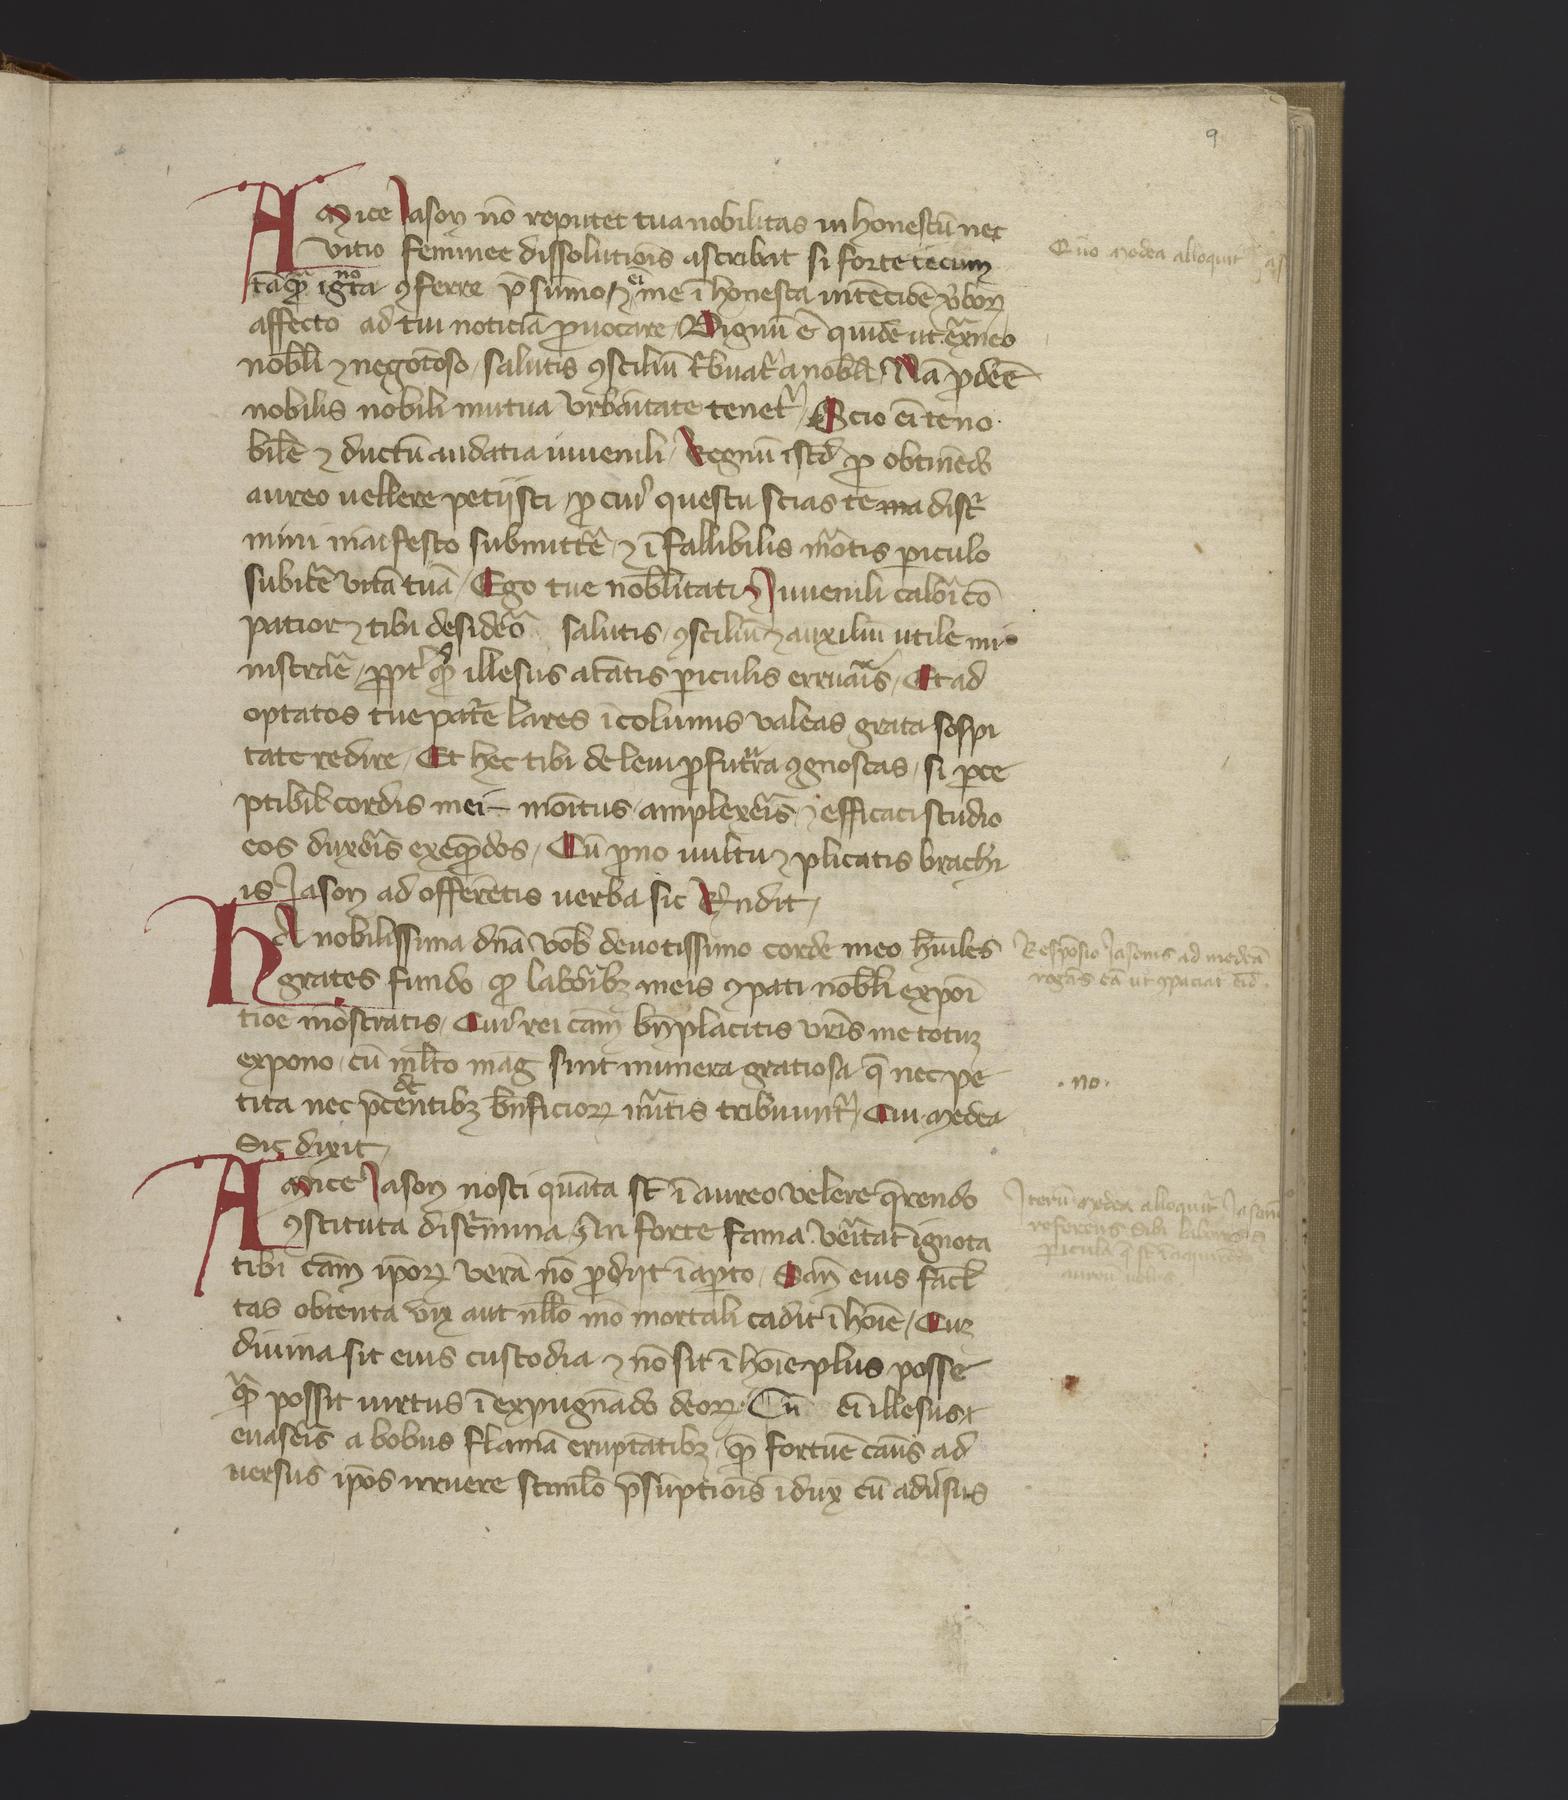 9
Amice Iason nō reputet tua nobilitas inhonestū nec
vitio feminee dissolutiōis ascribat si forte tecum
tāꝙᷓ ignota ꝯferre p̄sumo ⁊ ei me ī honesta intēcidē v̓boꝝ
affecto ad tui noticiā ꝓuocare / Dignū ē quidē ut ext̄neo
nobli ⁊ negotōso / salutis ꝯsciliū t̓buat̓ a nobli / Nā ꝓdēē
nobilis nobili mutua vrbaītate tenet̓ / Scio eī te no
bilē ⁊ ductū audatia iuuenili / Regnū istd̓ ꝓ obtinēdo
aureo uellere petijsti / ꝓ cui̓ questu scias te ma disc̓
mini māifesto submittē̓ / ⁊ ī fallibilis mōtis ꝑiculo
subire̓ vitā tuā / Ego tue noblitati Iuuenili calōi cō
patior ⁊ tibi desidēo salutis / ꝯsciliū ⁊ auxiliū utile mi
nistrāe / ꝓpt̓ qd̓ illesus atātis ꝑiculis erruāis / Et ad
optatos tue pat̓e lares īcolumis valeas grata sospi
tate redire / Et hec tibi de leui ꝓfutura ꝯgnoscas / si ꝑce
ptibil̓ cordis mei moītus / amplexēis / ⁊ efficaci studio
eos duxēis exeq̄ndos / Cū ꝓno uultu ⁊ plicatis brachi
is Iason ad offerētis uerba sic Rn̄dit /
Ha nobilissima dn̄a vob̓ deuotissimo corde meo hūiles
grates fundo ꝙ laborib̓ meis ꝯpati nobli expoī
tioe mōstratis / Cui̓ rei cām bn̄placitis vr̄is me totuꝫ
expono / cū ml̄to mag̓ sint munera gratiosa q̄ nec pe
tita nec p̄cedentibꝫ bn̄ficioꝝ mītis tribuunt̓ / Cui Medea
Sic dixit /
Amice Iason nosti quāta st̄ ī aureo velere q̄rendo
ꝯstituta disc̓mina / ⁊ An forte fama veritat̄ ignota
tibi cām ip̄oꝝ verā nō ꝓdijt ī aꝑto / Nam eius facl̓
tas obtenta vix aut nl̄lo mō mortali cadit ī hoīe / Cuꝫ
diuina sit eius custodia ⁊ nō sit ī hoīe plus posse
qᷓ possit uirtus ī expugnādo deoꝝ / Cū eī illesus
euasēis a bobus flāmā eruptātibꝫ / qᷓ fortuē cāus ad
uersus ip̄os irruere stimlō p̄sūptiōis īdux̓ cū adu̓sus
Quo Medea alloquit̓
Respōsio Iasonis ad medeā
rogās eā ut ꝯpaciat̓ eid̓.
. no.
Iterū Medea alloquit̓ Iasonē
referens sibi labores
ꝑicula q̄ st̄
aureū uellus